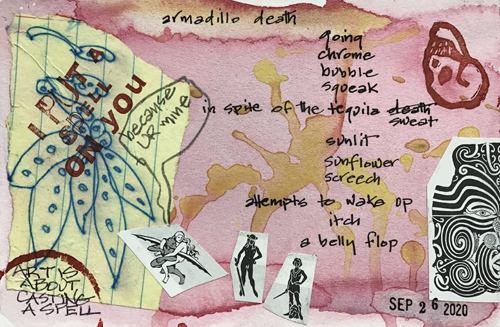 armadillo death
going
chrome
bubble
squeak
in spite of the tequila death
sweat
sunlit
sunflower
screech
attempts to wake up
itch
a belly flop
I PUT A
SPELL
ON you
because
UR mine
ART IS
ABOUT
CASTING
A SPELL
SEP 26 2020